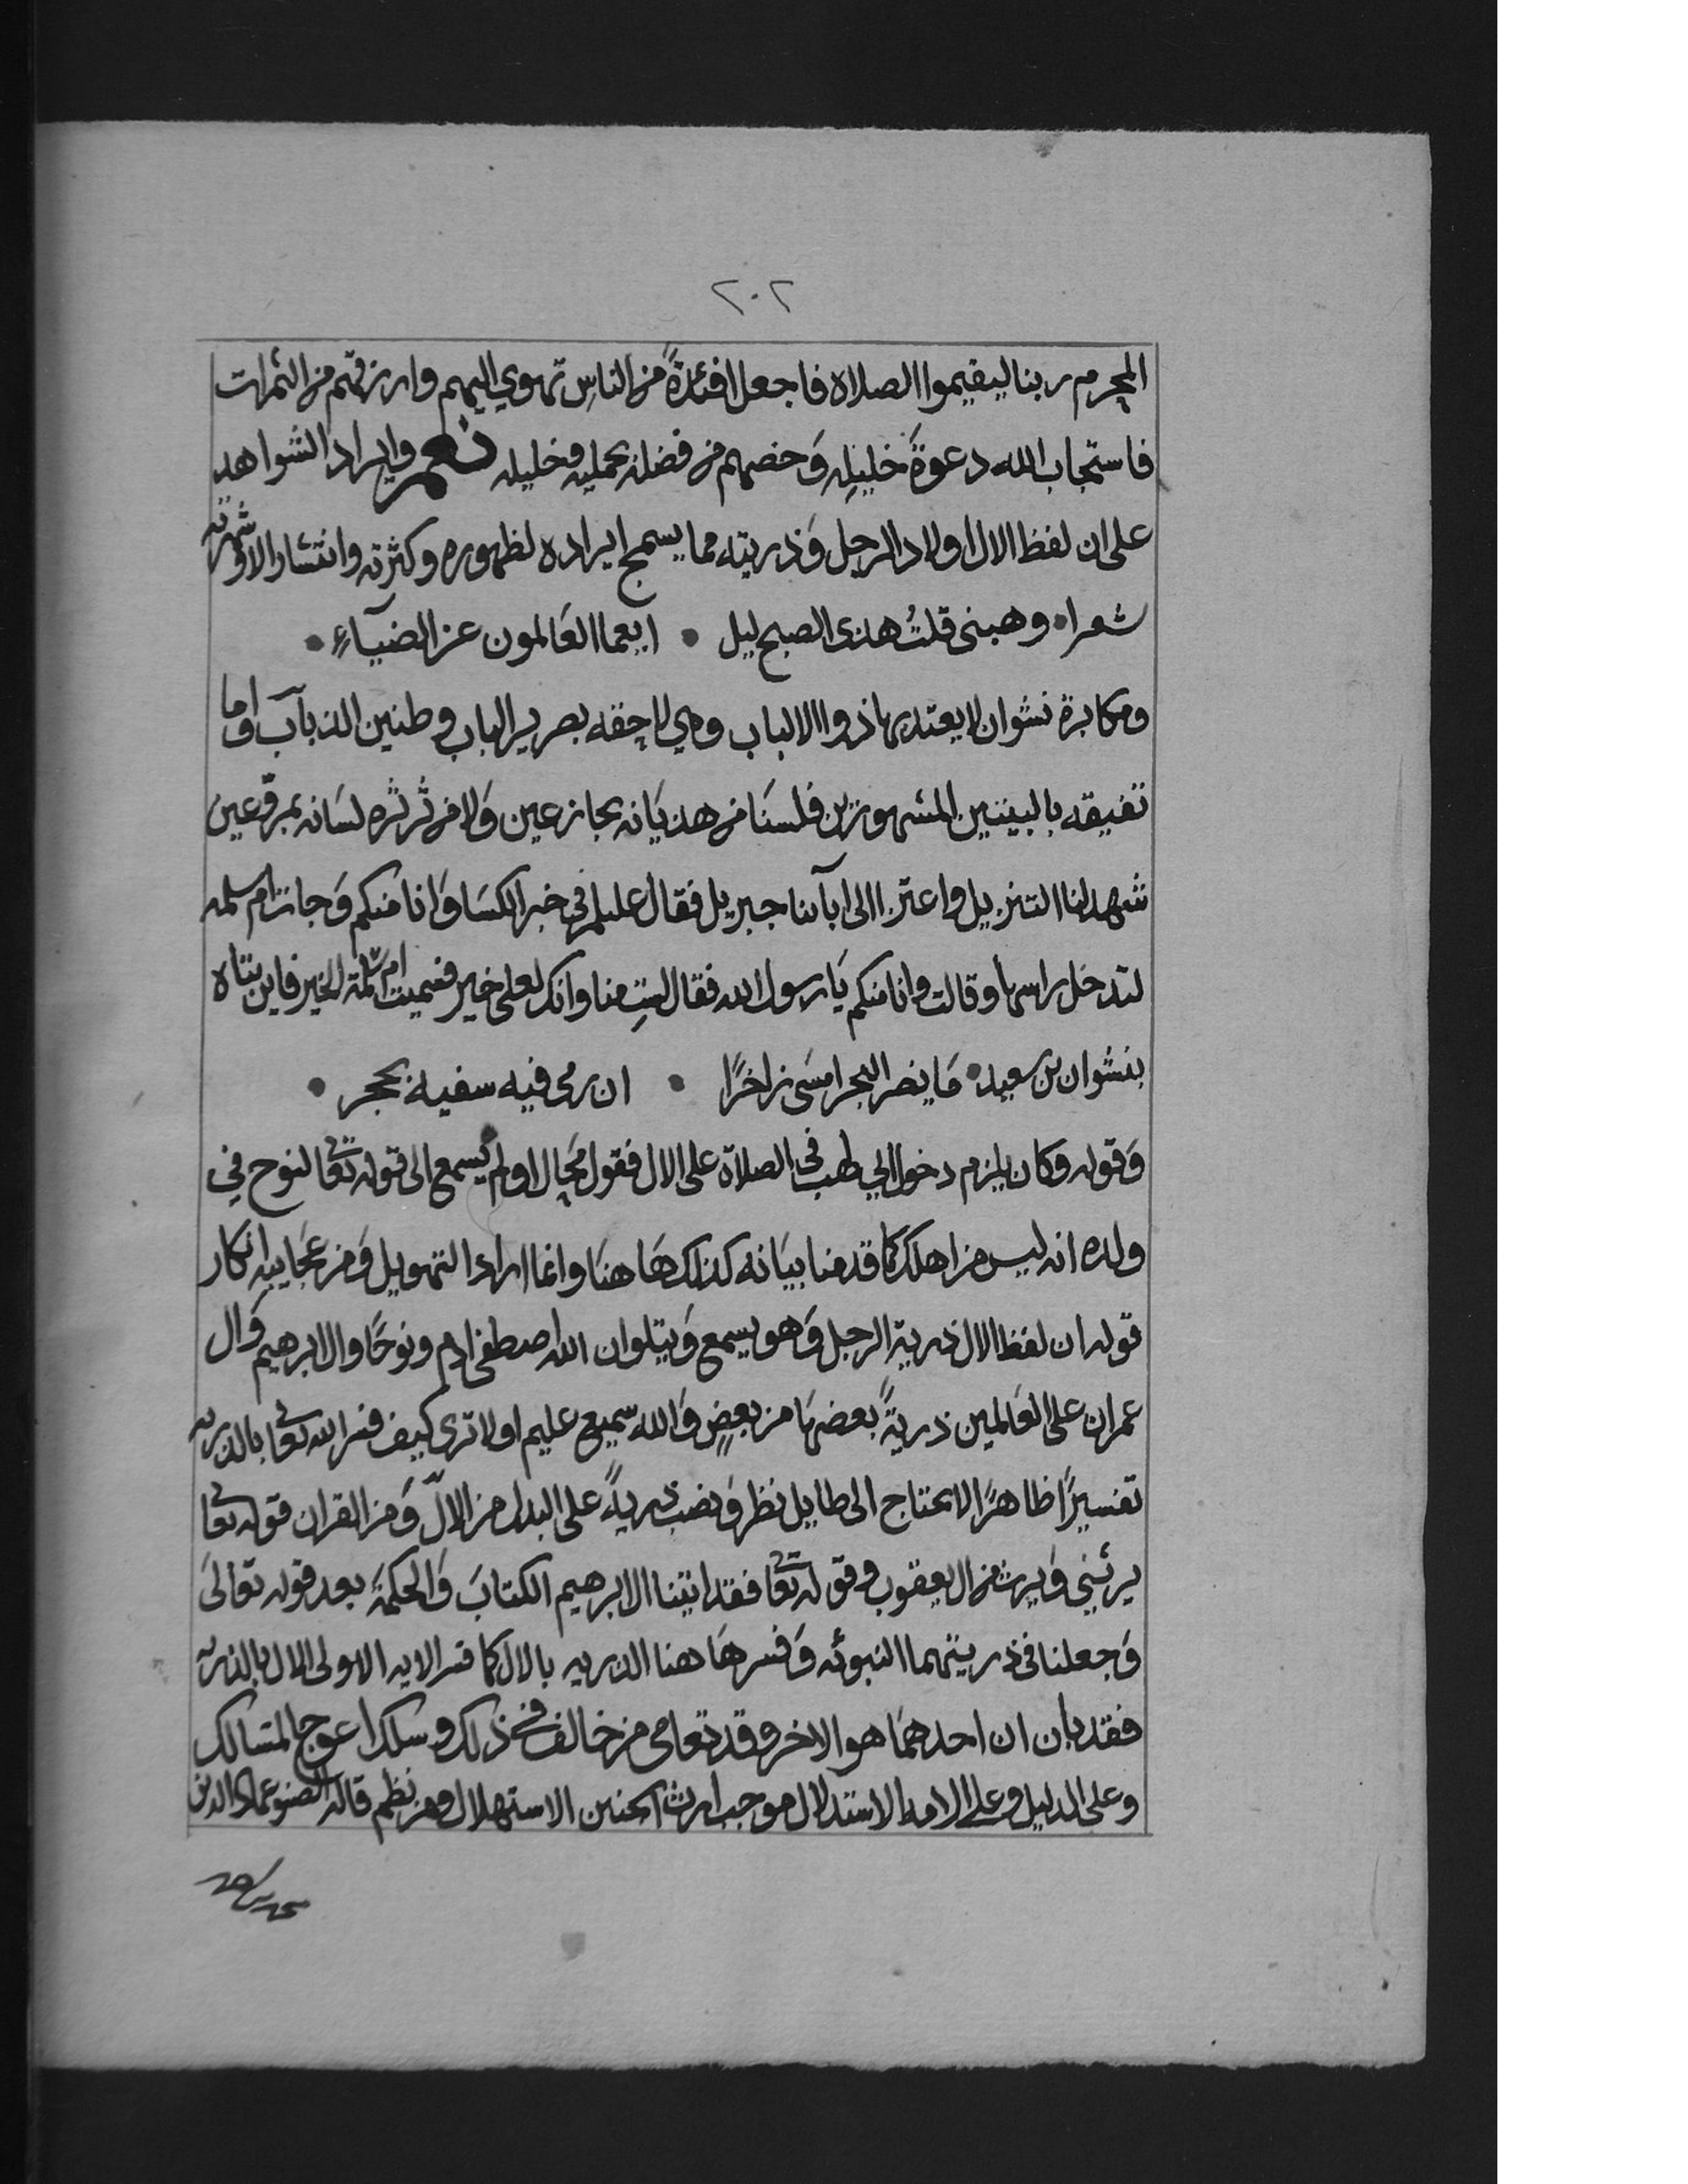 ٢٠٢
المحرم ربنا ليقيموا الصلاه فاجعل افئدةً من الناسِ تهوي اليهم وارزقهم من الثمرات
فاستجاب الله دعوةَ خليلِه وَخصهم من فضله بجمليه وخليله نعم وايراد الشواهد
على ان لفظ الال اولاد الرجل وَذريته مما يسمج ايراده لظهوره وكثرته وانتشار الا وشهرته
شعرا • وهبنى قلتُ هذى الصبح ليل • ايعما العَالمون عن الضيآءِ •
ومكابرة نشوان لا يعتد بها ذووا الالباب وهي لاحقه بصرير الباب وطنين الذبآب واما
تفيقه بالبيتين المشهورين فلسنَا من هذيَانه بجازعين وَلا من ثرثره لسَانه بمروّعين
شهد لنا التنزيل واعتزا الى ابآئنا جبريل فقال عليلم في خبر الكسَا وَانا منكم وَجات ام سلمه
لتدخل راسها وقالت وانا منكم يَا رسول الله فقال لستِ منا وانك لعلى خير فسميت ام سلمة الخير فاين نتاه
بنشوان بن سعيد • مَا يضر البحر امسَى زاخرًا • ان رمى فيه سفيه بحجر •
وَقوله وكان يلزم دخول ابي طهب في الصلاة على الال فقول مُحال اولم يسمع الى قوله تعَالى لنوح في
ولده انه ليس من اهلك كما قدمنا بيَانه كذلك هَاهنَا وانما اراد التهويل وَمن عجَايبه انكار
قوله ان لفظ الال ذرية الرجل وَهو يسمع وَيتلوا ان الله اصطفى ادم ونوحًا وال ابرهيم وَال
عمران على العَالمين ذريةً بعضهَا من بعضٍ وَالله سميع عليم اولا ترى كيف فسر الله تعَالى بالذريه
تفسيرًا ظاهرًا لا يحتاج الى طايل نظر وَنصب ذريةً على البدل من الالّ وَمن القران قوله تعَالى
يرثني وَيرث من ال يعقوب وقوله تعَالى فقد اتينا ال ابرهيم الكتابَ وَالحكمة بعد قوله تعَالىَ
وَجعلنا فى ذريتهما النبوّه وَفسر هَاهنا الذريه بالال كما فسر الايه الاولى الال بالذريه
فقد بان ان احدهمَا هو الاخر وقد تعامى من خالف في ذلك وسلك اعوج المسَالك
وعلى الدليل وعلى الامه الاستدلال موجب ارث الجنين الاستهلال ومن نظم قاله الصنو عماد الدين